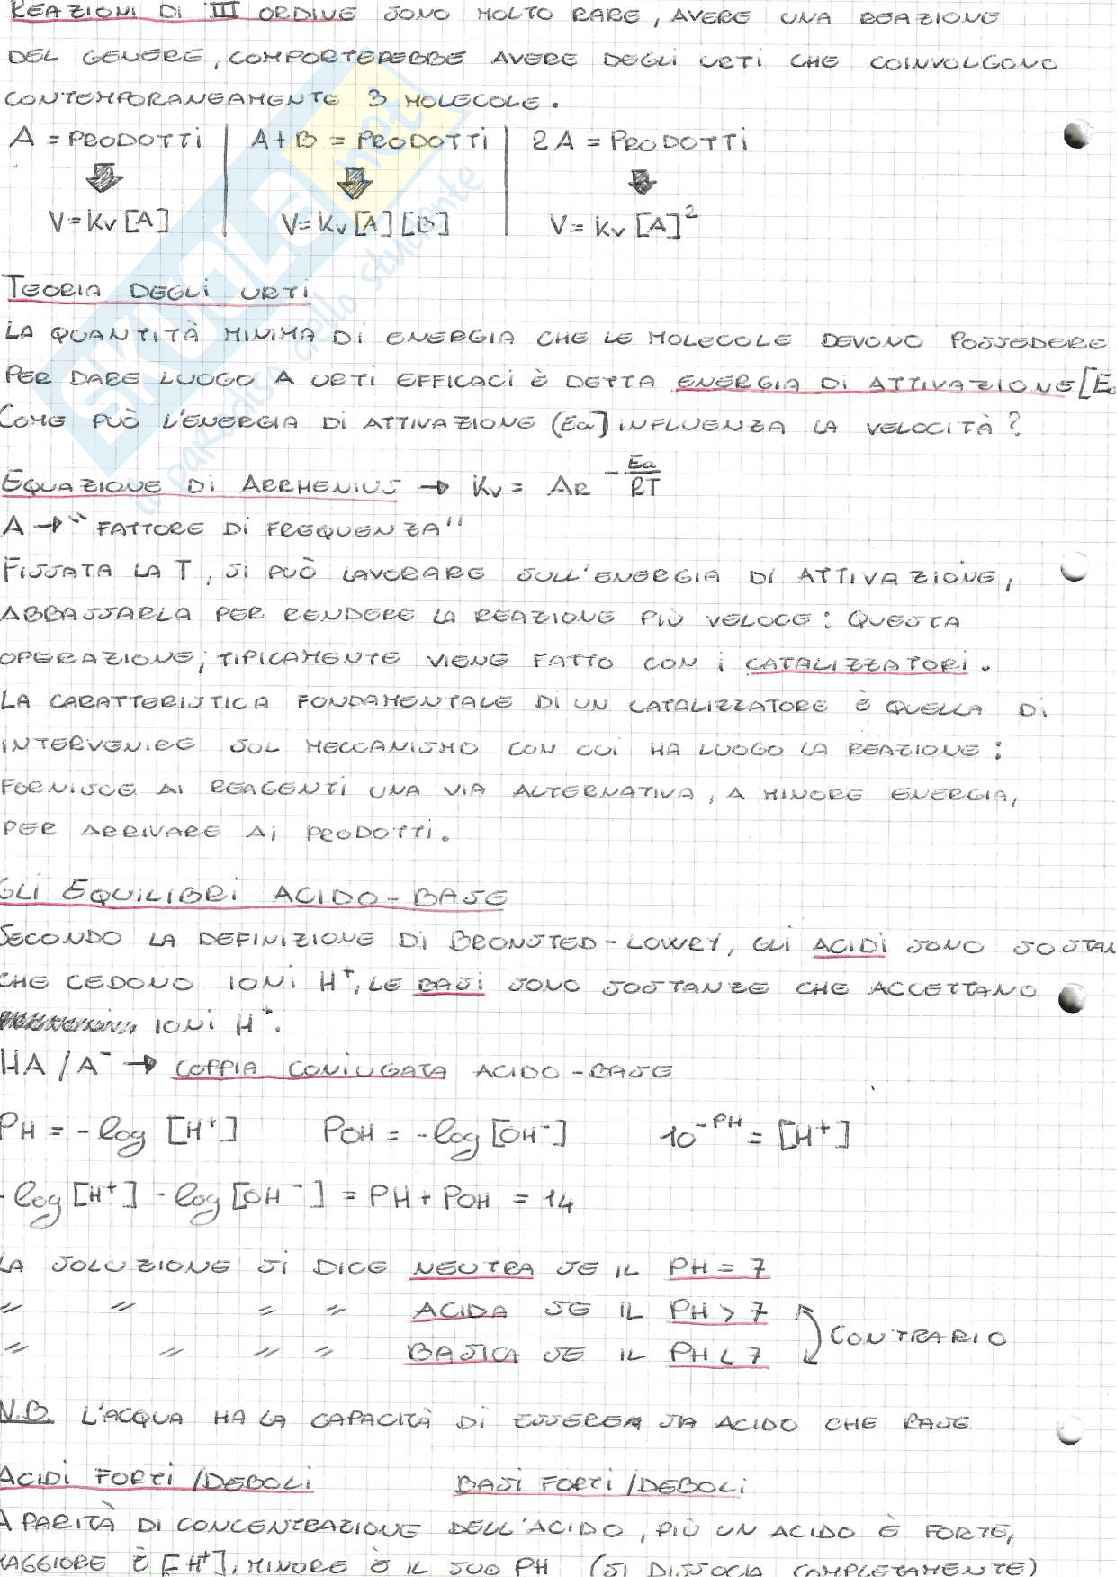 REAZIONI DI III ORDINE SONO MOLTO RARE, AVERE UNA REAZIONE
DEL GENERE, COMPORTEREBBE AVERE DEGLI URTI CHE COINVOLGONO
CONTEMPORANEAMENTE 3 MOLECOLE.
A = PRODOTTI | A+B = PRODOTTI | 2A = PRODOTTI
V=Kv[A] | V=Kv[A][B] | V=Kv[A]²
TEORIA DEGLI URTI
LA QUANTITÀ MINIMA DI ENERGIA CHE LE MOLECOLE DEVONO POSSEDERE
PER DARE LUOGO A URTI EFFICACI È DETTA ENERGIA DI ATTIVAZIONE [Ea
COME PUÒ L'ENERGIA DI ATTIVAZIONE (Ea] INFLUENZA LA VELOCITÀ?
EQUAZIONE DI ARRHENIUS → Kv = Ae^-Ea/RT
A → "FATTORE DI FREQUENZA"
FISSATA LA T, SI PUÒ LAVORARE SULL'ENERGIA DI ATTIVAZIONE,
ABBASSARLA PER RENDERE LA REAZIONE PIÙ VELOCE: QUESTA
OPERAZIONE, TIPICAMENTE VIENE FATTO CON I CATALIZZATORI.
LA CARATTERISTICA FONDAMENTALE DI UN CATALIZZATORE È QUELLA DI
INTERVENIRE SUL MECCANISMO CON CUI HA LUOGO LA REAZIONE:
FORNISCE AI REAGENTI UNA VIA ALTERNATIVA, A MINORE ENERGIA,
PER ARRIVARE AI PRODOTTI.
GLI EQUILIBRI ACIDO-BASE
SECONDO LA DEFINIZIONE DI BRONSTED-LOWRY, GLI ACIDI SONO SOSTAN
CHE CEDONO IONI H⁺, LE BASI SONO SOSTANZE CHE ACCETTANO
IONI H⁺.
HA/A⁻ → COPPIA CONIUGATA ACIDO-BASE
PH = -log [H⁺] POH = -log [OH⁻] 10^-PH = [H⁺]
-log [H⁺] -log [OH⁻] = PH + POH = 14
LA SOLUZIONE SI DICE NEUTRA SE IL PH = 7
〃 〃 〃 〃 ACIDA SE IL PH > 7
CONTRARIO
〃 〃 〃 〃 BASICA SE IL PH < 7
N.B. L'ACQUA HA LA CAPACITÀ DI ESSERE SIA ACIDO CHE BASE
ACIDI FORTI/DEBOLI BASI FORTI/DEBOLI
A PARITÀ DI CONCENTRAZIONE DELL'ACIDO, PIÙ UN ACIDO È FORTE,
MAGGIORE È [H⁺], MINORE È IL SUO PH (SI DISSOCIA COMPLETAMENTE)